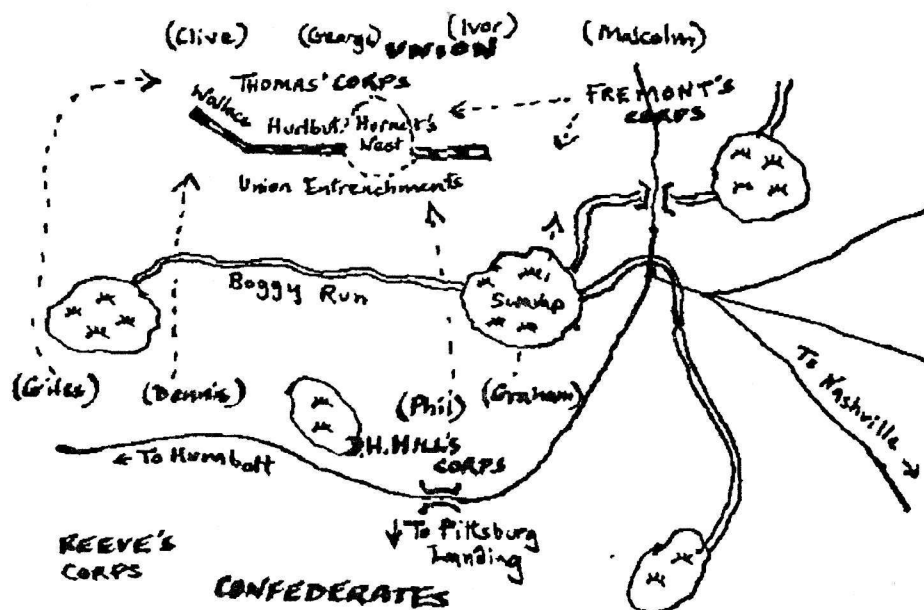 (Clive) (George) (Ivor) (Malcolm)
UNION
THOMAS' CORPS
FREMONT'S
CORPS
Wallace
Hurlbut
Hornet's
Nest
Union Entrenchments
Boggy Run
Swamp
(Giles) (Dennis) (Phil) (Graham)
To Nashville
D.H. HILL'S
CORPS
To Humbolt
To Pittsburg
Landing
REEVE'S
CORPS
CONFEDERATES